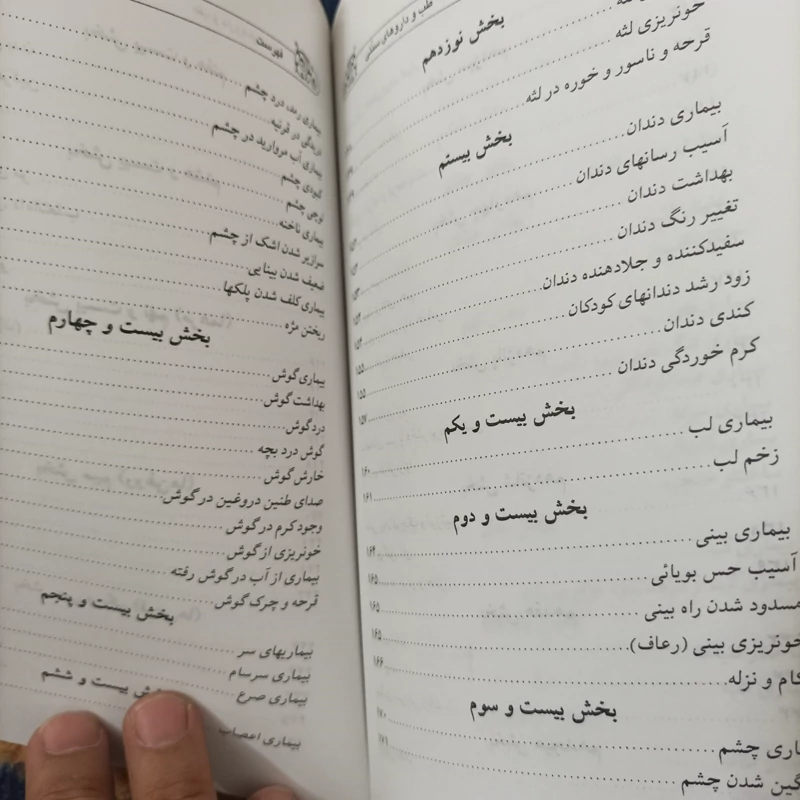 طب و داروهای سنتی
بخش نوزدهم
خونریزی لثه
قرحه و ناسور و خوره در لثه
بخش بیستم
بیماری دندان
آسیب رسانهای دندان
بهداشت دندان
تغییر رنگ دندان
سفیدکننده و جلادهنده دندان
زود رشد دندانهای کودکان ۱۵۵
کندی دندان ۱۵۵
کرم خوردگی دندان ۱۵۷
بخش بیست و یکم
بیماری لب ۱۶۰
زخم لب ۱۶۱
بخش بیست و دوم
بیماری بینی ۱۶۴
آسیب حس بویائی ۱۶۵
مسدود شدن راه بینی ۱۶۵
خونریزی بینی (رعاف) ۱۶۵
کام و نزله ۱۶۶
بخش بیست و سوم
اری چشم ۱۷۰
گین شدن چشم ۱۷۱
فهرست
بیماری رمد، درد چشم
در قرنیه
بیماری آب مروارید در چشم
کبودی چشم
لوچی چشم
بیماری ناخنه
سرازیر شدن اشک از چشم
ضعیف شدن بینایی
بیماری کلفت شدن پلکها
ریختن مژه
بخش بیست و چهارم
بیماری گوش
بهداشت گوش
درد گوش
گوش درد بچه
خارش گوش
صدای طنین دروغین در گوش
وجود کرم در گوش
خونریزی از گوش
بیماری از آب در گوش رفته
قرحه و چرک گوش
بخش بیست و پنجم
بیماریهای سر
بیماری سرسام
بیماری صرع
بخش بیست و ششم
بیماری اعصاب